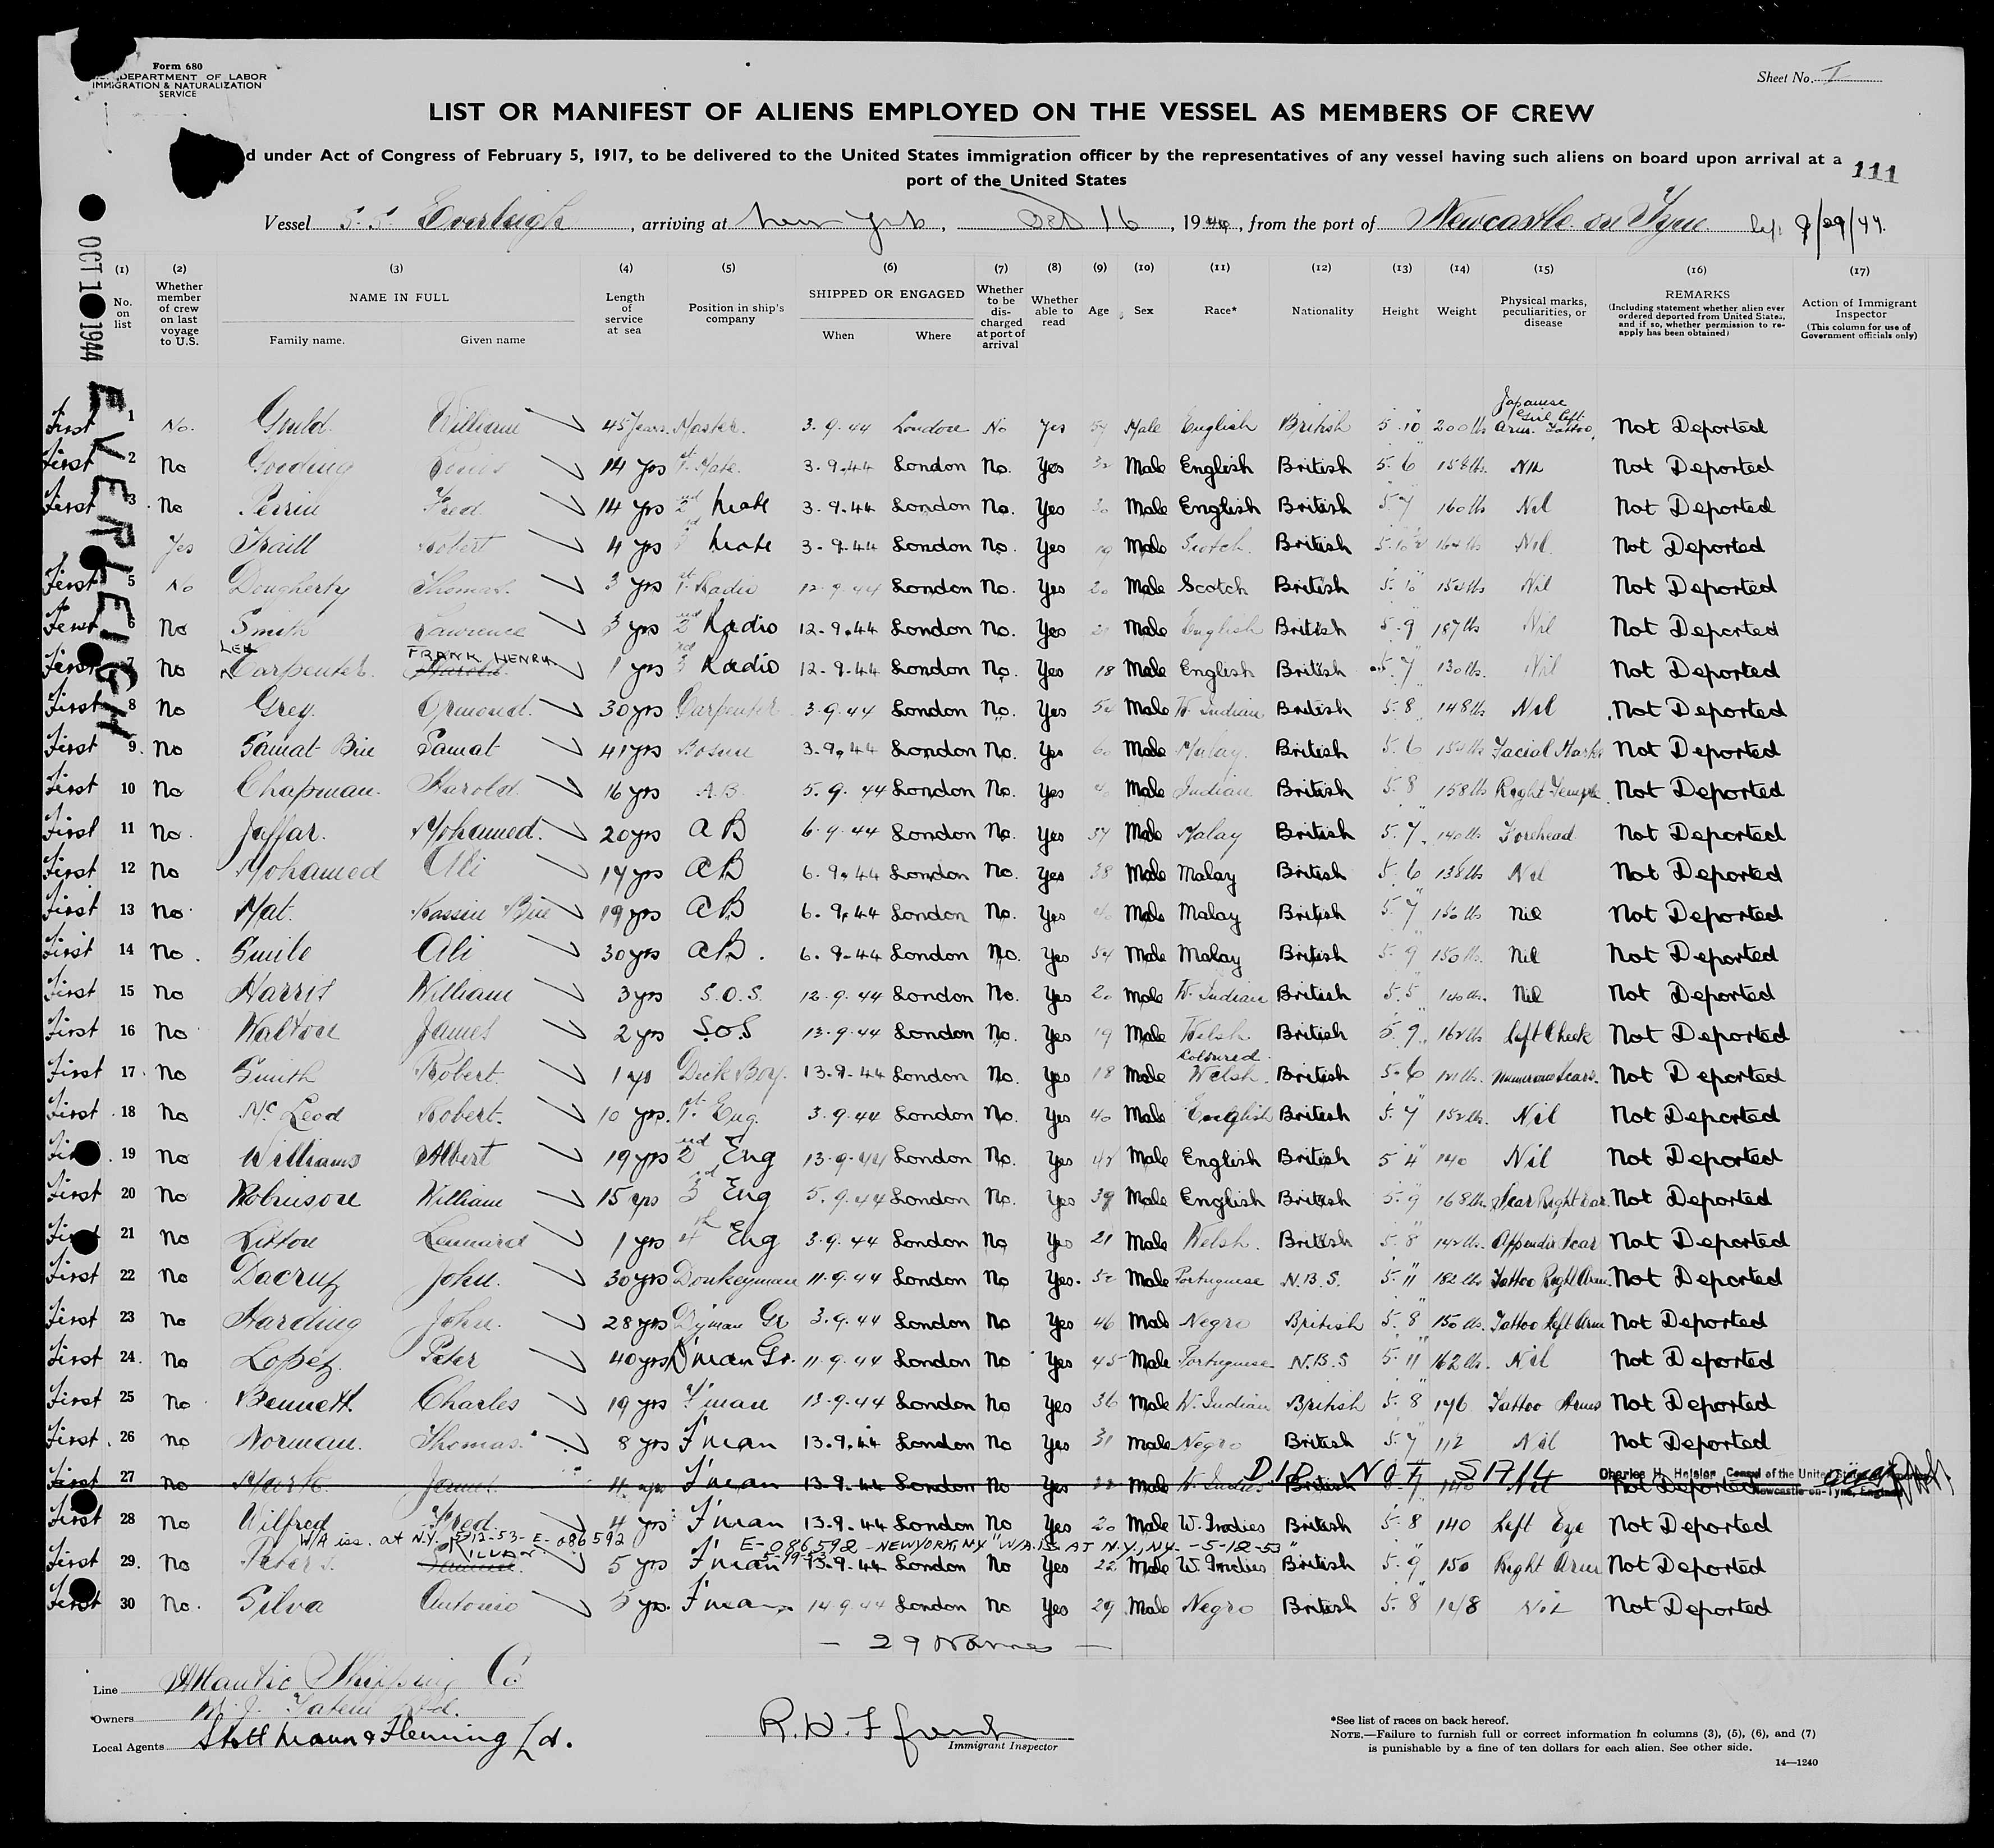 Form 680
DEPARTMENT OF LABOR
IMMIGRATION & NATURALIZATION
SERVICE
Sheet No. I
LIST OR MANIFEST OF ALIENS EMPLOYED ON THE VESSEL AS MEMBERS OF CREW
d under Act of Congress of February 5, 1917, to be delivered to the United States immigration officer by the representatives of any vessel having such aliens on board upon arrival at a
port of the United States
111
Vessel S.S. Everleigh, arriving at New York, Oct 16, 1944, from the port of Newcastle on Tyne left 9/29/44.
OCT 1 1944
EVERLEIGH
(1) (2) (3) (4) (5) (6) (7) (8) (9) (10) (11) (12) (13) (14) (15) (16) (17)
No. on list
Whether member of crew on last voyage to U.S.
NAME IN FULL
Family name. Given name
Length of service at sea
Position in ship's company
SHIPPED OR ENGAGED
When Where
Whether to be discharged at port of arrival
Whether able to read
Age
Sex
Race*
Nationality
Height
Weight
Physical marks, peculiarities, or disease
REMARKS
(Including statement whether alien ever ordered deported from United States, and if so, whether permission to re-apply has been obtained)
Action of Immigrant Inspector
(This column for use of Government officials only)
Japanese
Girl left
First 1 No. Guild. William 45 Years. Master. 3.9.44 London No Yes Male English British 5.10 200 lbs arm. Tattoo, Not Deported
First 2 No Gooding 14 yrs 1st Mate. 3.9.44 London No. Yes Male English British 5.6 158 lbs. Nil Not Deported
First 3 No Perrin Fred 14 yrs 2nd Mate 3.9.44 London No. Yes 30 Male English British 5.7 160 lbs Nil Not Deported
Yes Traill Robert 4 yrs 3rd Mate 3.9.44 London No. Yes 19 Male Scotch British Nil. Not Deported
First 5 No Dougherty Thomas. 3 yrs 1st Radio 12.9.44 London No. Yes 20 Male Scotch British Nil Not Deported
First 6 No Smith Lawrence 3 yrs 2nd Radio 12.9.44 London No. Yes 21 Male English British 5.9 187 lbs Nil Not Deported
LEN FRANK HENRY
First 7 No Carpenter. Harold. 1 yrs 3rd Radio 12.9.44 London No. Yes 18 Male English British 5.7 130 lbs. Nil Not Deported
First 8 No Grey. Ormond. 30 yrs Carpenter 3.9.44 London No. Yes Male W. Indian British 5.8 148 lbs Nil Not Deported
First 9. No Samat Bin Samat 41 yrs Bosun 3.9.44 London No. Yes 60 Male Malay. British 5.6 Facial Marks Not Deported
First 10 No Chapman. Harold 16 yrs A.B. 5.9.44 London No. Yes Male Indian British 5.8 158 lbs Right Temple. Not Deported
First 11 No. Jaffar. Mohamed. 20 yrs AB 6.9.44 London No. Yes 37 Male Malay British 5.7 140 lbs Forehead Not Deported
First 12 No Mohamed Ali 17 yrs AB 6.9.44 London No. Yes 38 Male Malay British 5.6 138 lbs Nil Not Deported
First 13 No Mat. Kassim Bin 19 yrs AB 6.9.44 London No. Yes Male Malay British 5.7 Nil Not Deported
First 14 No. Smile Ali 30 yrs AB. 6.9.44 London No. Yes 54 Male Malay British 5.9 150 lbs. Nil Not Deported
First 15 No Harris William 3 yrs S.O.S. 12.9.44 London No. Yes 20 Male W. Indian British 5.5 140 lbs. Nil Not Deported
First 16 No Walton James 2 yrs S.O.S 13.9.44 London No. Yes 19 Male Welsh British 5.9 168 lbs Left Cheek Not Deported
Coloured
First 17. No Smith Robert. 1 yr Deck Boy. 13.9.44 London No. Yes 18 Male Welsh. British 5.6 Numerous Scars. Not Deported
First 18 No McLeod Robert. 10 yrs. 1st Eng. 3.9.44 London No. Yes 40 Male English British 5.7 152 lbs. Nil Not Deported
19 No Williams Albert 19 yrs 2nd Eng 13.9.44 London No. Yes Male English British 5 4 140 Nil Not Deported
First 20 No Robinson William 15 yrs 3rd Eng 5.9.44 London No. Yes 39 Male English British 5.9 168 lbs. Scar Right ear. Not Deported
21 No Litton Leonard 1 yrs 4th Eng 3.9.44 London No Yes 21 Male Welsh. British 5.8 142 lbs. Appendix Scar Not Deported
First 22 No Dacruz John. 30 yrs Donkeyman 11.9.44 London No Yes. 52 Male Portuguese N.B.S. 5.11 182 lbs Tattoo Right Arm. Not Deported
First 23 No Harding John. 28 yrs D'yman Gr 3.9.44 London No Yes 46 Male Negro British 5.8 150 lbs. Tattoo Left Arm Not Deported
First 24. No Lopez. Peter 40 yrs D'man Gr. 11.9.44 London No Yes 45 Male Portuguese N.B.S 5.11 162 lbs. Nil Not Deported
First 25 No Bennett. Charles 19 yrs F'man 13.9.44 London No Yes 36 Male W. Indian British 5.8 176 Tattoo Arms Not Deported
First 26 No Norman. Thomas. 8 yrs F'man 13.9.44 London No Yes 31 Male Negro British 5.7 112 Nil Not Deported
DID NOT SIGN Charles H. Heisler Consul of the United States
First 27 No James F'man 13.9.44 London No Yes Male W. Indies British 140 Nil Not Deported Newcastle-on-Tyne, England
First 28 No Wilfred Fred 4 yrs F'man 13.9.44 London No Yes 20 Male W. Indies British 5.8 140 Left Eye Not Deported
W/A iss. at N.Y. 5-12-53- E-086592 E-086592 - NEW YORK, NY "W/A ISS AT N.Y., N.Y. - 5-12-53"
First 29. No Peters. 5 yrs F'man 13.9.44 London No Yes 22 Male W. Indies British 5.9 150 Right Arm Not Deported
First 30 No. Silva Antonio 5 yrs. F'man 14.9.44 London No Yes 29 Male Negro British 5.8 148 Nil Not Deported
- 29 Names -
Line Atlantic Shipping Co
Owners W. J. Tatem Ltd.
Local Agents Stott Mann & Fleming Ld.
Immigrant Inspector
*See list of races on back hereof.
NOTE.—Failure to furnish full or correct information in columns (3), (5), (6), and (7)
is punishable by a fine of ten dollars for each alien. See other side.
14—1240